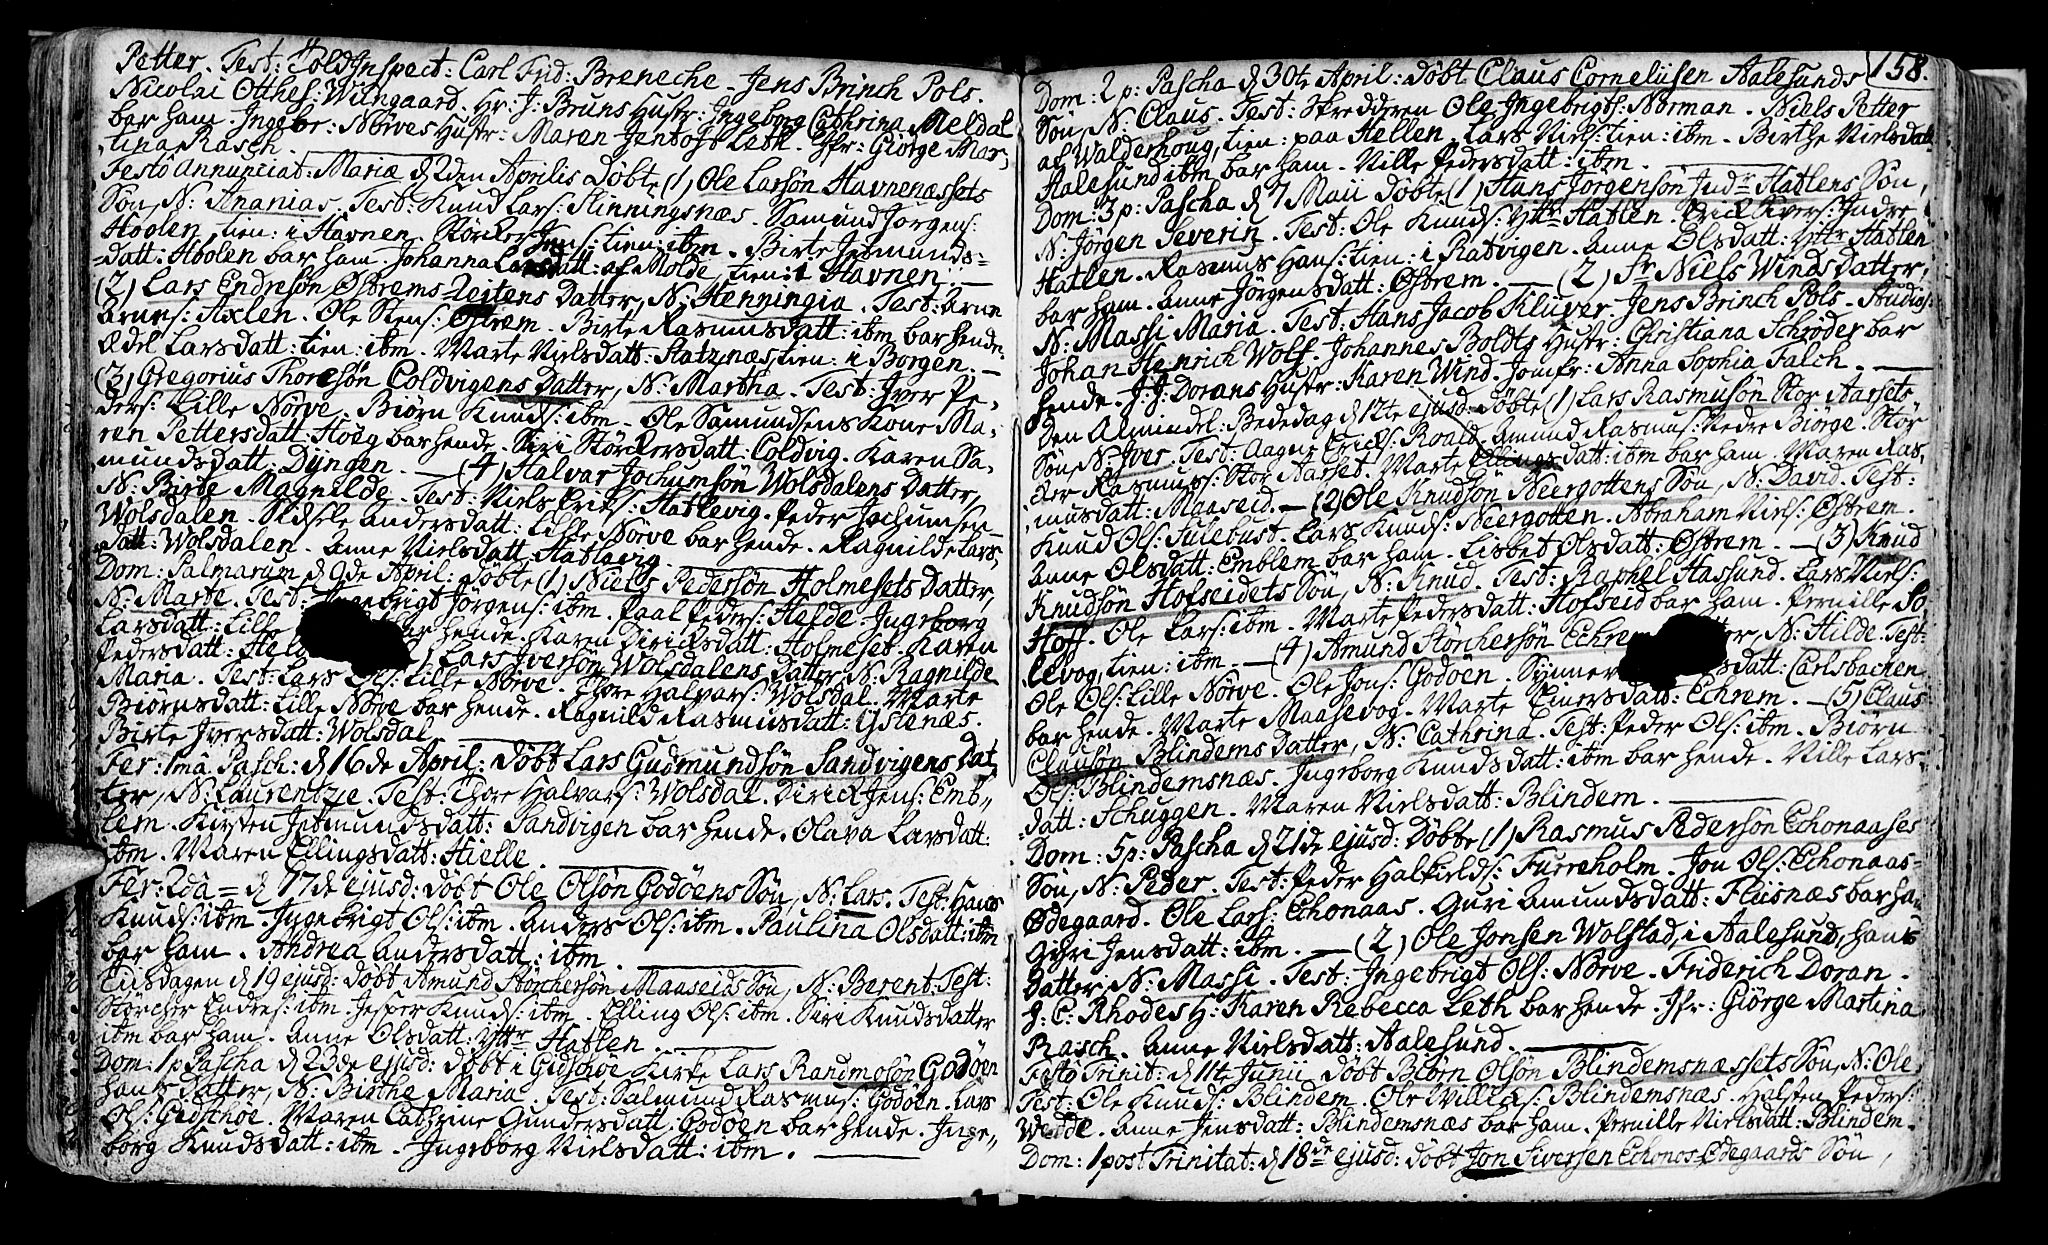 Petter. Test: Told Inspect: Carl Frid: Breneche. Jens Brinch Pols.
Nicolai Otthes: Wiingaard. Hr: J: Bruns Hustr: Ingeborg Cathrina Meldal
bar ham. Ingebr: Nørves Hustr: Maren Jentoft Leth. Jfr: Giørge Mar,
tina Rasch.
Festo Annunciat: Mariæ d 2den Aprilis Døbte (1) Ole Larsön Havnenæssets
Sön, N: Ananias. Test: Knud Lars: Slinningsnæs. Samund Jørgens:
Hoolen, tien: i Havnen. Störcker Jens: tien: ibm. Birte Jetmunds=
=datt: Hoolen bar ham. Johanna Larsdatt: af Molde, tien: i Havnen. —
(2) Lars Endresön Østrems Leitens Datter, N: Henningia. Test: Arne
Arnes: Axlen. Ole Stens: Østrem. Birte Rasmusdatt: ibm bar hende.
Ædel Larsdatt: tien: ibm. Marte Nielsdatt: Slatznæs tien: i Borgen. —
(3) Gregorius Thoresön Coldvigens Datter, N: Martha. Test: Iver Pe-
ders: Lille Nørve. Biørn Knuds: ibm. Ole Samundsens Kone Ma-
ren Pettersdatt: Høeg bar hende. Siri Störckersdatt: Coldvig. Karen Sa-
mundsdatt: Dyngen. — (4) Halvar Jochumsön Wolsdalens Datter,
N: Birte Magnilde. Test: Niels Erics: Hatlevig. Peder Jochumsen
Wolsdalen. Sidsele Andersdatt: Lille Nørve bar hende. Ragnilde Lars,
datt: Wolsdalen. Anne Nielsdatt: Hatlevig.
Dom: Palmarum d 9de April: Døbte (1) Niels Pedersøn Holmesets Datter,
N: Marte. Test: Ingebrigt Jörgens: ibm. Paal Peders: Helde. Ingeborg
Larsdatt: Lille bar hende. Karen Diricksdatt: Holmeset. Karen
Pedersdatt: Lars Iversön Wolsdalens Datter, N: Ragnilde
Maria. Test: Lars Ols: Lille Nørve. Thore Halvars: Wolsdal. Marte
Biørnsdatt: Lille Nørve bar hende. Ragnild Rasmusdatt: Gstenæs.
Birte Iversdatt: Wolsdal.
Fer: 1mâ Pasch: d 16de April: døbt Lars Gudmundsön Sandvigens Dat,
ter, N: Laurentze. Test: Thore Halvars: Wolsdal. Dirick Jens: Emb-
lem. Kirsten Jetmundsdatt: Sandvigen bar hende. Olava Larsdatt:
ibm. Maren Ellingsdatt: Hielle.
Fer: 2dâ = d 17de ejusd: døbt Ole Olsön Godöens Sön, N: Lars. Test: Hans
Knuds: ibm. Ingebrigt Ols: ibm. Anders Ols: ibm. Paulina Olsdatt: ibm
bar ham. Andrea Andersdatt: ibm.
d 19 ejusd: døbt Amund Störchersön Maaseids Sön, N: Berent. Test:
Störcher Endres: ibm. Jesper Knuds: ibm. Elling Ols: ibm. Siri Knudsdatter
ibm bar ham. Anne Olsdatt: Yttr Hatlen
Dom: 1 p Pascha d 23de ejusd: døbt i Gidschøe Kirke Lars Randmosön Godøen
hans Datter, N: Birthe Maria. Test: Salmund Rasmus: Godøen. Lars
Ols: Gidschøe. Maren Cathrine Gundersdatt: Godøen bar hende. Inge-
borg Knudsdatt: ibm. Ingeborg Nielsdatt: ibm.
158.
Dom: 2 p: Pascha d 30te April: døbt Claus Corneliisen Aalesunds
Sön, N: Claus. Test: Skredderen Ole Ingebrigts: Norman. Niels Petter
af Walderhoug, tien: paa Hellen. Lars Niels: tien: ibm. Birthe Nielsdatt:
Aalesund ibm bar ham. Nille Pedersdatt: ibm.
Dom: 3 p: Pascha d 7 Maii døbte (1) Hans Jørgensøn Indr Hatlens Sön,
N: Jørgen Severin. Test: Ole Knuds: Yttr Hatlen. Erick Ivers: Indre
Hatlen. Rasmus Hans: tien: i Ratvigen. Anne Olsdatt: Yttr Hatlen
bar ham. Anne Jørgensdatt: Østrem. — (2) Sr Niels Winds Datter,
N: Massi Maria. Test: Hans Jacob Klüver. Jens Brinch Pols. Studios:
Johan Henrich Wolf. Johannes Boldts Hustr: Christiana Schrøder bar
hende. J: J: Dorans Hustr: Karen Wind. Jomfr: Anna Sophia Falch. —
Den Almindel: Bededag d 12te ejusd: døbte (1) Lars Rasmusön Stor Aarsets
Sön, N: Iver. Test: Aagus Erics: Roald. Amund Rasmus: Nedre Biørge. Stör
cker Rasmus: Stor Aarset. Marte Ellingsdatt: ibm bar ham. Maren Ras,
musdatt: Maaseid. — (2) Ole Knudsön Neergottens Sön, N: David. Test:
Knud Ols: Sulebust. Lars Knuds: Neergotten. Abraham Niels: Østrem.
Anne Olsdatt: Emblem bar ham. Lisbet Olsdatt: Østrem. — (3) Knud
Knudsön Hofseidets Sön, N: Knud. Test: Raphel Aassund. Lars Niels:
Hoff. Ole Lars: ibm. Marte Pedersdatt: Hofseid bar ham. Pernille So
levog, tien: ibm. — (4) Amund Storchersön Echrem Datter, N: Hilde. Test:
Ole Ols: Lille Nørve. Ole Jons: Godøen. Synner sdatt: Carlsbachen
bar hende. Marte Maasevog. Marte Einersdatt: Echrem. — (5) Claus
Clausön Blindems Datter, N: Cathrina. Test: Peder Ols: ibm. Biørn
Ols: Blindemsnæs. Ingeborg Knudsdatt: ibm bar hende. Nille Lars-
datt: Schuggen. Maren Nielsdatt: Blindem.
Dom: 5 p: Pascha d 21de ejusd: Døbte (1) Rasmus Pedersön Echonaases
Sön, N: Peder. Test: Peder Halkields: Furreholm. Jon Ols: Echonaas=
Ødegaard. Ole Lars: Echonaas. Guri Amundsdatt: Fliisnæs bar ha.
Guri Jensdatt: ibm. — (2) Ole Jonsen Wolstad, i Aalesund, hans
Datter, N: Massi. Test: Ingebrigt Ols: Nörve. Friderich Doran.
J: E: Rhodes H: Karen Rebecca Leth bar hende. Jfr: Giörge Martina
Rasch. Anne Nielsdatt: Aalesund.
Festo Trinit: d 11te Junii døbt Biørn Olsön Blindemsnæssets Sön, N: Ole
Test: Ole Knuds: Blindem. Ole Willas: Blindemsnæs. Halsten Peders:
Wedde. Anne Jensdatt: Blindemsnæs bar ham. Pernille Nielsdatt: Blindem.
Dom: 1 post Trinitat: d 18de ejusd: døbt Jon Siversen Echonos Ødegaards Sön,